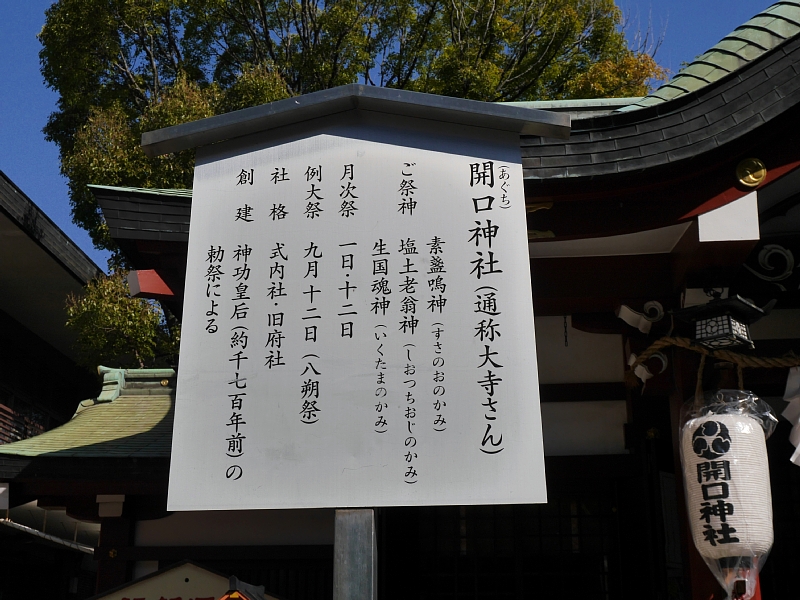 開口神社(通称大寺さん)
(あぐち)
素盞嗚神(すさのおのかみ)
ご祭神 塩土老翁神(しおつちおじのかみ)
生国魂神(いくたまのかみ)
月次祭 一日・十二日
例大祭 九月十二日(八朔祭)
社格 式内社・旧府社
創建 神功皇后(約千七百年前)の
勅祭による
開口神社